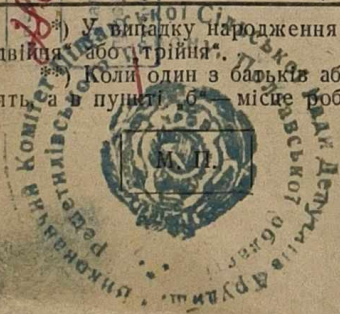 *) У випадку народження
двійня“ або „трійня“.
**) Коли один з батьків
а в пункті „б“ — місце
М. П.
Виконавчий Комітет Сільської Ради Депутатів Трудящ.
Решетилівського Полтавської області